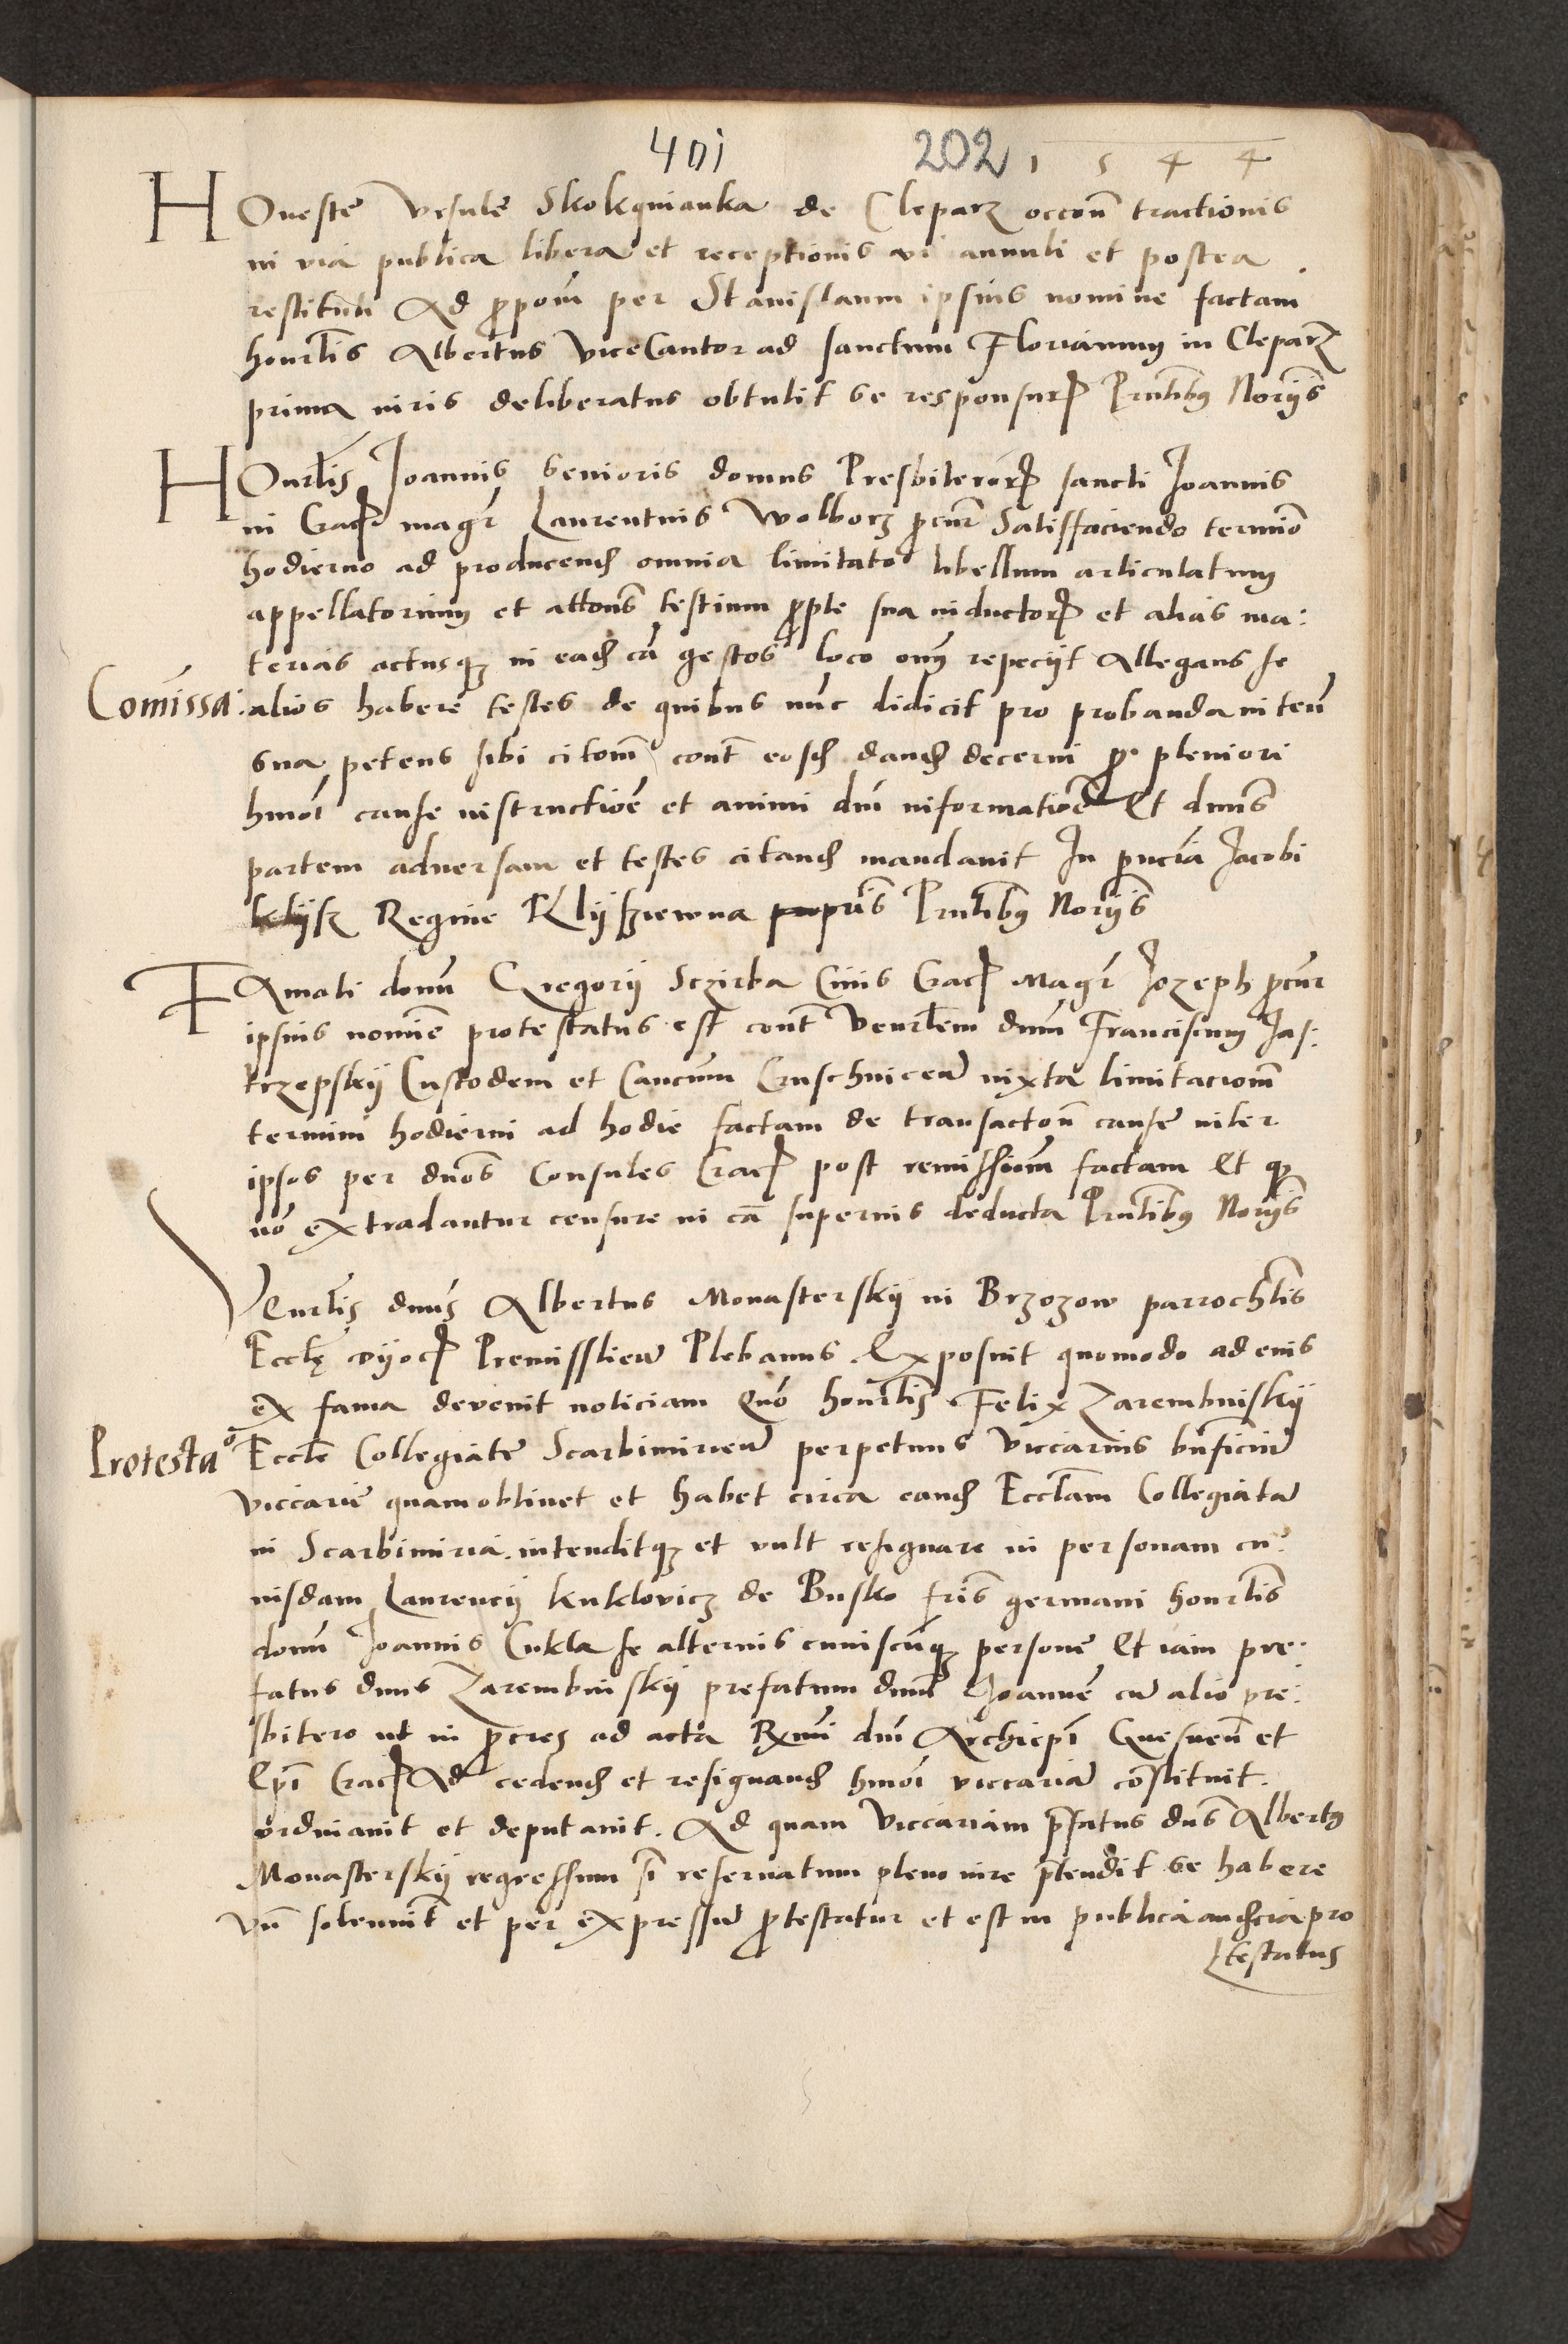 401 202 1 5 4 4
HOneste Vrsule Skokqnianka de Cleparz occoñ tractionis
in via publica libera et receptionis vi annuli et postea
restituti Ad ppom per Stanislaum ipsius nomine factam
honrlis Albertus viceCantor ad sanctum Florianum in Cleparz
prima iuris deliberatus obtulit se responsur Pntibus Noriis
HOnrlis Joannis senioris domus Presbiteror sancti Joannis
in Crac magr Laurentius Wolborz pcur Satisfaciendo termio
hodierno ad producend omnia limitato libellum articulatum
appellatorium et attones testium pple sua inductor et alias ma:
terias actusq in ead ca gestos loco om repeciit Allegans se
Comissa: alios habere testes de quibus nuc didicit pro probanda inten
sua petens sibi citom cont eosd dand decerni p pleniori
hmoi cause instructioe et animi dni informatioe Et dnus
partem aduersam et testes citand mandauit In pncia Jacobi
Regine Klijszewna pntis Pntibus Noriis
FAmati domi Gregorij Sczirba Ciuis Crac Magr Jozeph pcur
ipsius nomie protestatus est cont Venrlem dnum Franciscum Jas:
trzepskij Custodem et Cancum Cruschuicen iuxta limitacionem
termini hodierni ad hodie factam de transactoñ cause inter
ipsos per dnos Consules Crac post remissiom factam Et q
no extradantur censure in ca superius deducta Pntibus Noriis
Venrlis dnus Albertus Monasterskij in Brzozow parrochlis
Eccle dyoc Premisslien Plebanus Exposuit quomodo ad eius
ex fama devenit noticiam Quo honrlis Felix Zarembinskij
Protestao Eccle Collegiate Scarbimirien perpetuus viccarius bnficium
viccarie quam obtinet et habet circa eand Ecclam Collegiata
in Scarbimiria intenditq et vult resignare in personam cu:
iusdam Laurencij Kuklovicz de Busko fris germani honrlis
domi Joannis Cukla se alterius cuiuscuq persone Et iam pre:
fatus dnus Zarembinskij prefatum dnum Joannem cu alio pre:
sbitero ut in pcres ad acta Rxmi dni Archiepi Gnesnen et
Epi Crac Ad cedend et resignand hmoi viccaria constituit
ordinauit et deputauit. Ad quam viccariam pfatus dns Albertus
Monasterskij regressum si reseruatum pleno iure ptendit se habere
vn solennit et per expressu ptestatur et est in publica audcia pro
testatus